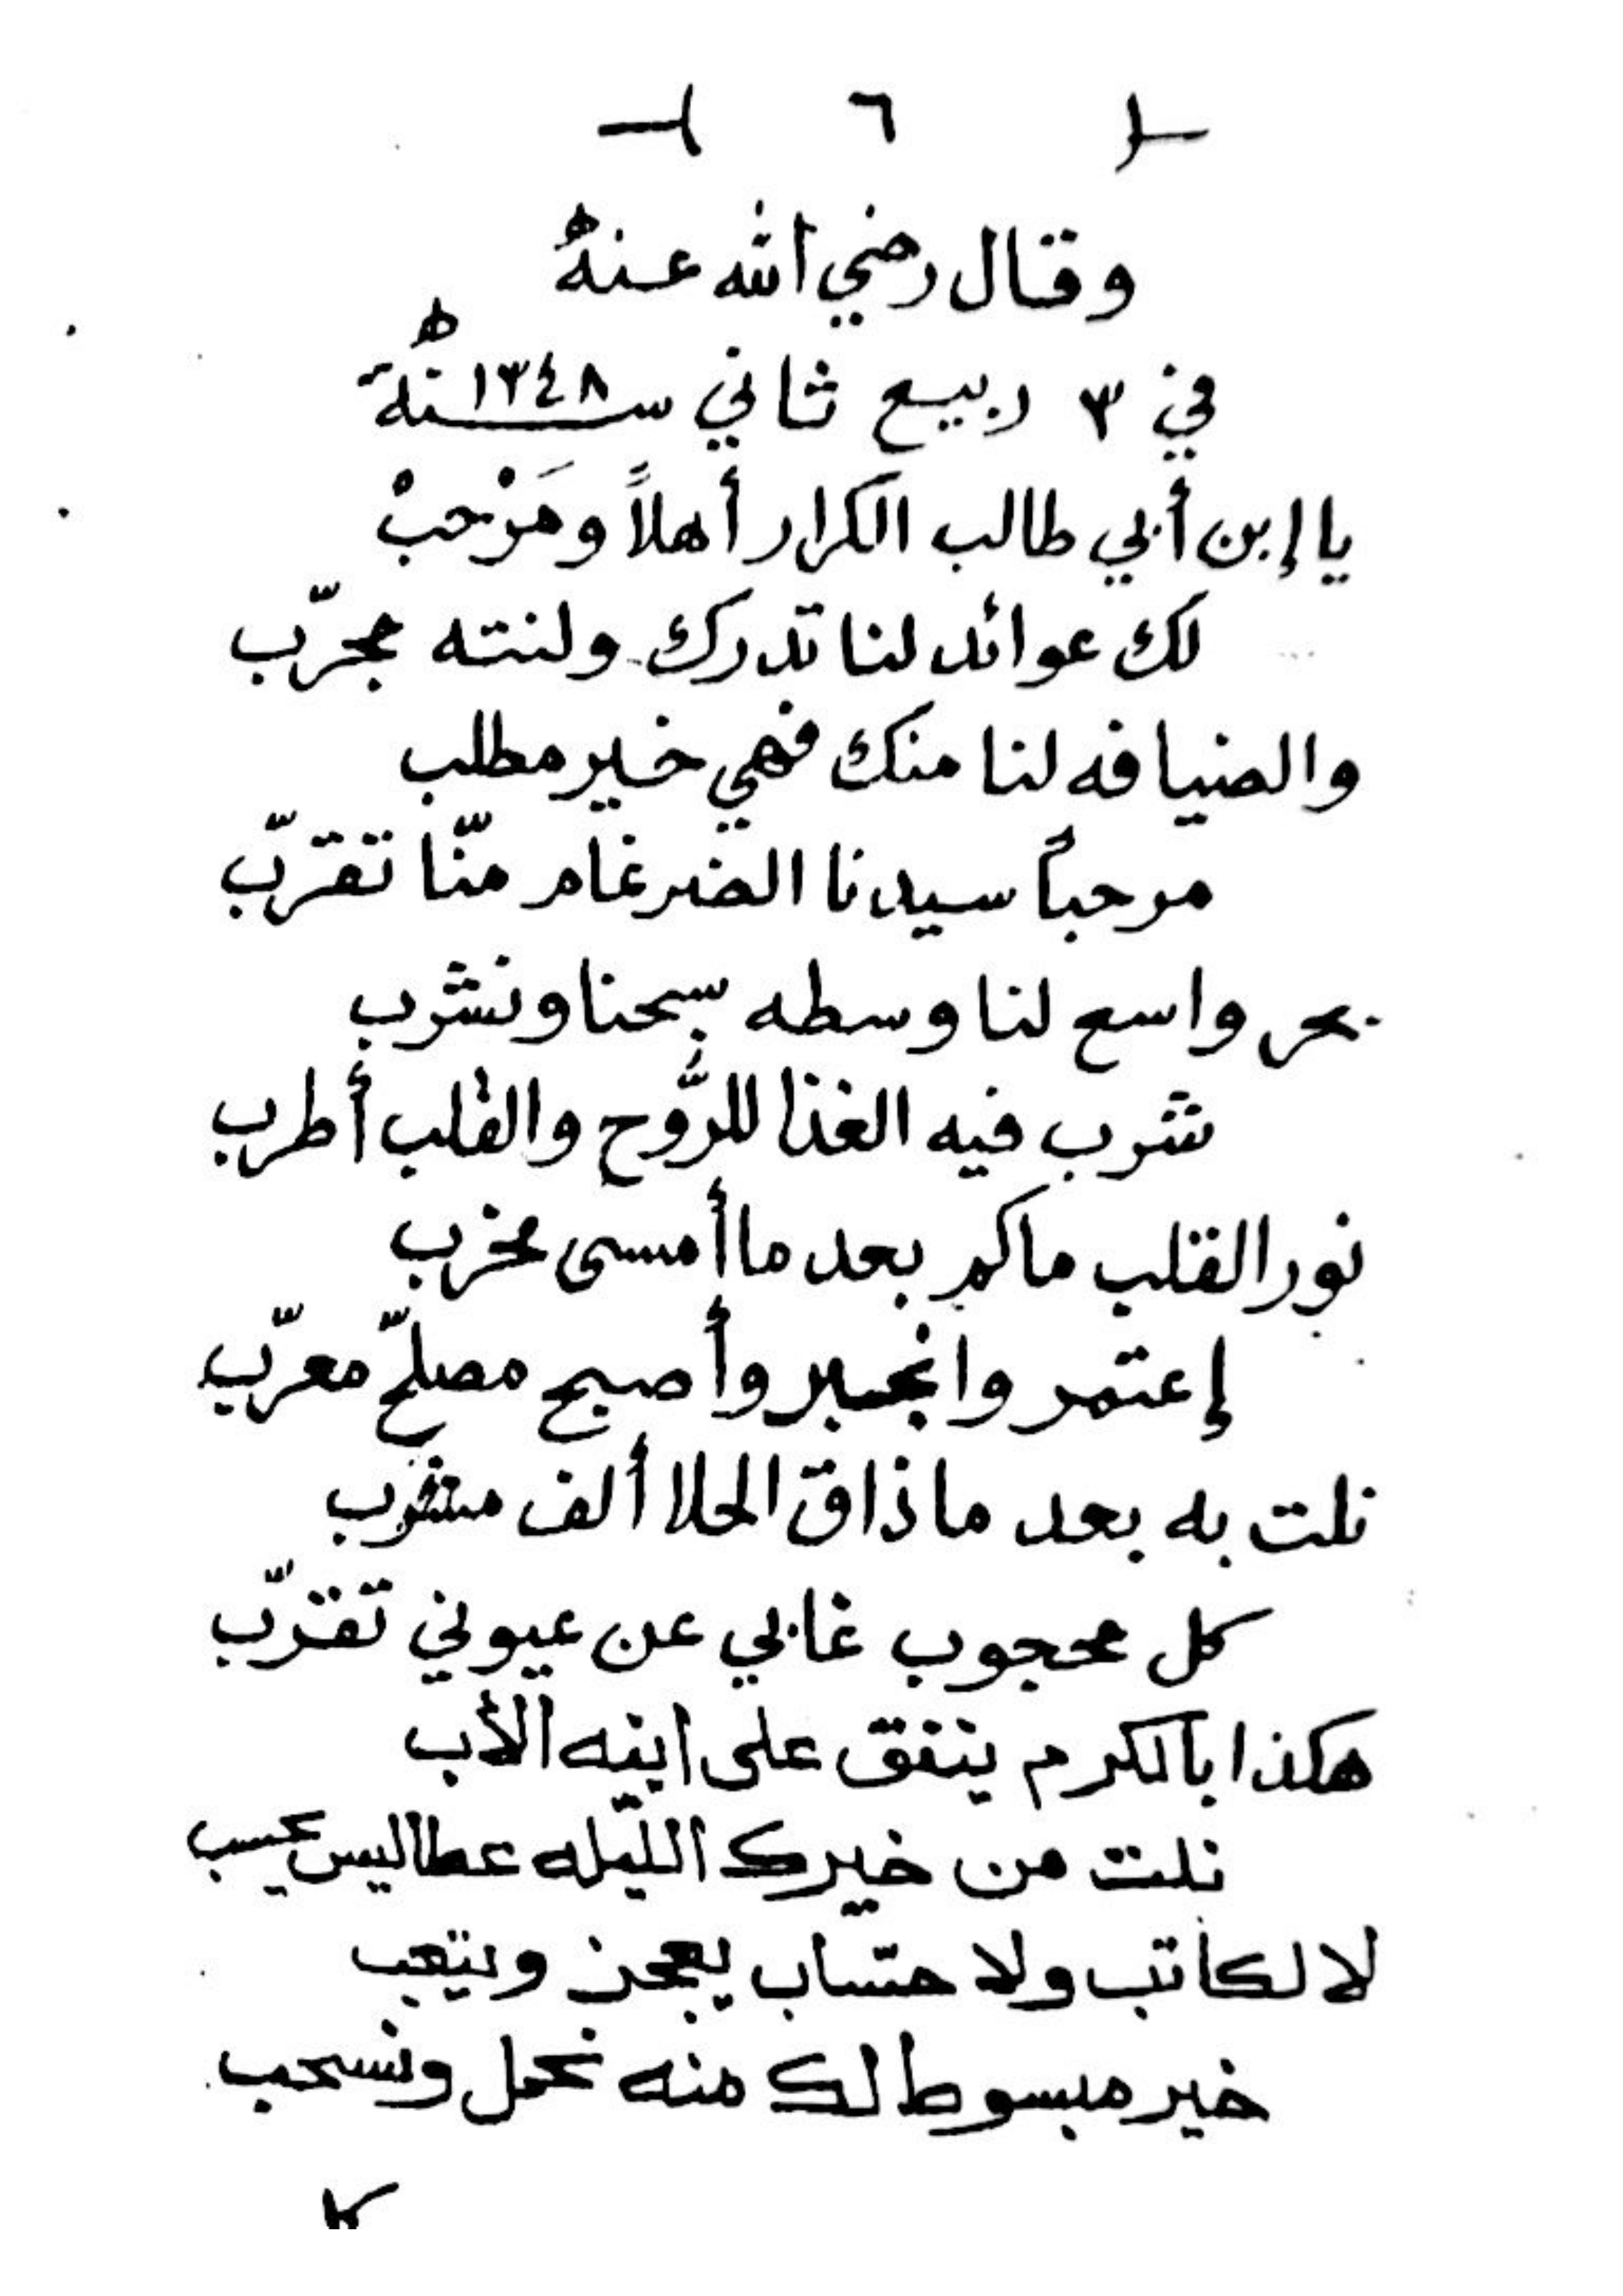 ٦
وقال رضي الله عنهُ
في ٣ ربيع ثاني سنة ١٣٤٨ ه
يا إبن أبي طالب الكرار أهلاً ومَرْحبْ
لك عوائد لنا تدرك ولنته مجرّب
والضيافه لنا منك فهي خير مطلب
مرحباً سيدنا الضرغام منّا تقرّب
بحر واسع لنا وسطه سبحنا ونشرب
شرب فيه الغذا للرُّوح والقلب أطرب
نور القلب ماكم بعد ما أمسى مخرب
إعتمر وانجبر وأصبح مصلّح معرّب
نلت به بعد ما ذاق الحلا ألف مشرب
كل محجوب غابي عن عيوني تقرّب
هكذا بالكرم ينفق على ابنه الأب
نلت من خيرك الليله عطا ليس يحسب
لا لكاتب ولا حسّاب يعجز ويتعب
خير مبسوط لك منه نحمل ونسحب
كا